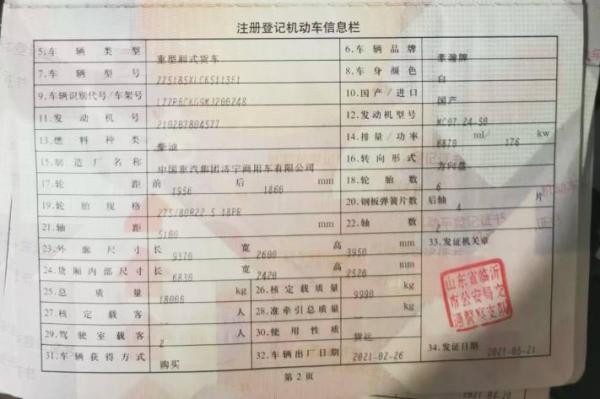 注册登记机动车信息栏
5.车辆类型 重型厢式货车 6.车辆品牌 豪瀚牌
7.车辆型号 8.车身颜色 白
9.车辆识别代号/车架号 10.国产/进口 国产
11.发动机号 210207804577 12.发动机型号 MC07.24-50
13.燃料种类 柴油 14.排量/功率 6870 ml/ 176 kw
15.制造厂名称 中国重汽集团济宁商用车有限公司 16.转向形式 方向盘
17.轮距 前 1956 后 1860 mm 18.轮胎数 6
19.轮胎规格 275/80R22.5 18PR 20.钢板弹簧片数 后轴 4 片
21.轴距 5100 mm 22.轴数 2
23.外廓尺寸 长 9370 宽 2600 高 3950 mm 33.发证机关章
24.货厢内部尺寸 长 6830 宽 2420 高 2520 mm
25.总质量 18000 kg 26.核定载质量 9990 kg
27.核定载客 -- 人 28.准牵引总质量 -- kg
29.驾驶室载客 2 人 30.使用性质 货运
31.车辆获得方式 购买 32.车辆出厂日期 2021-02-26 34.发证日期 2021-05-21
山东省临沂
市公安局交
通警察支队
第2页